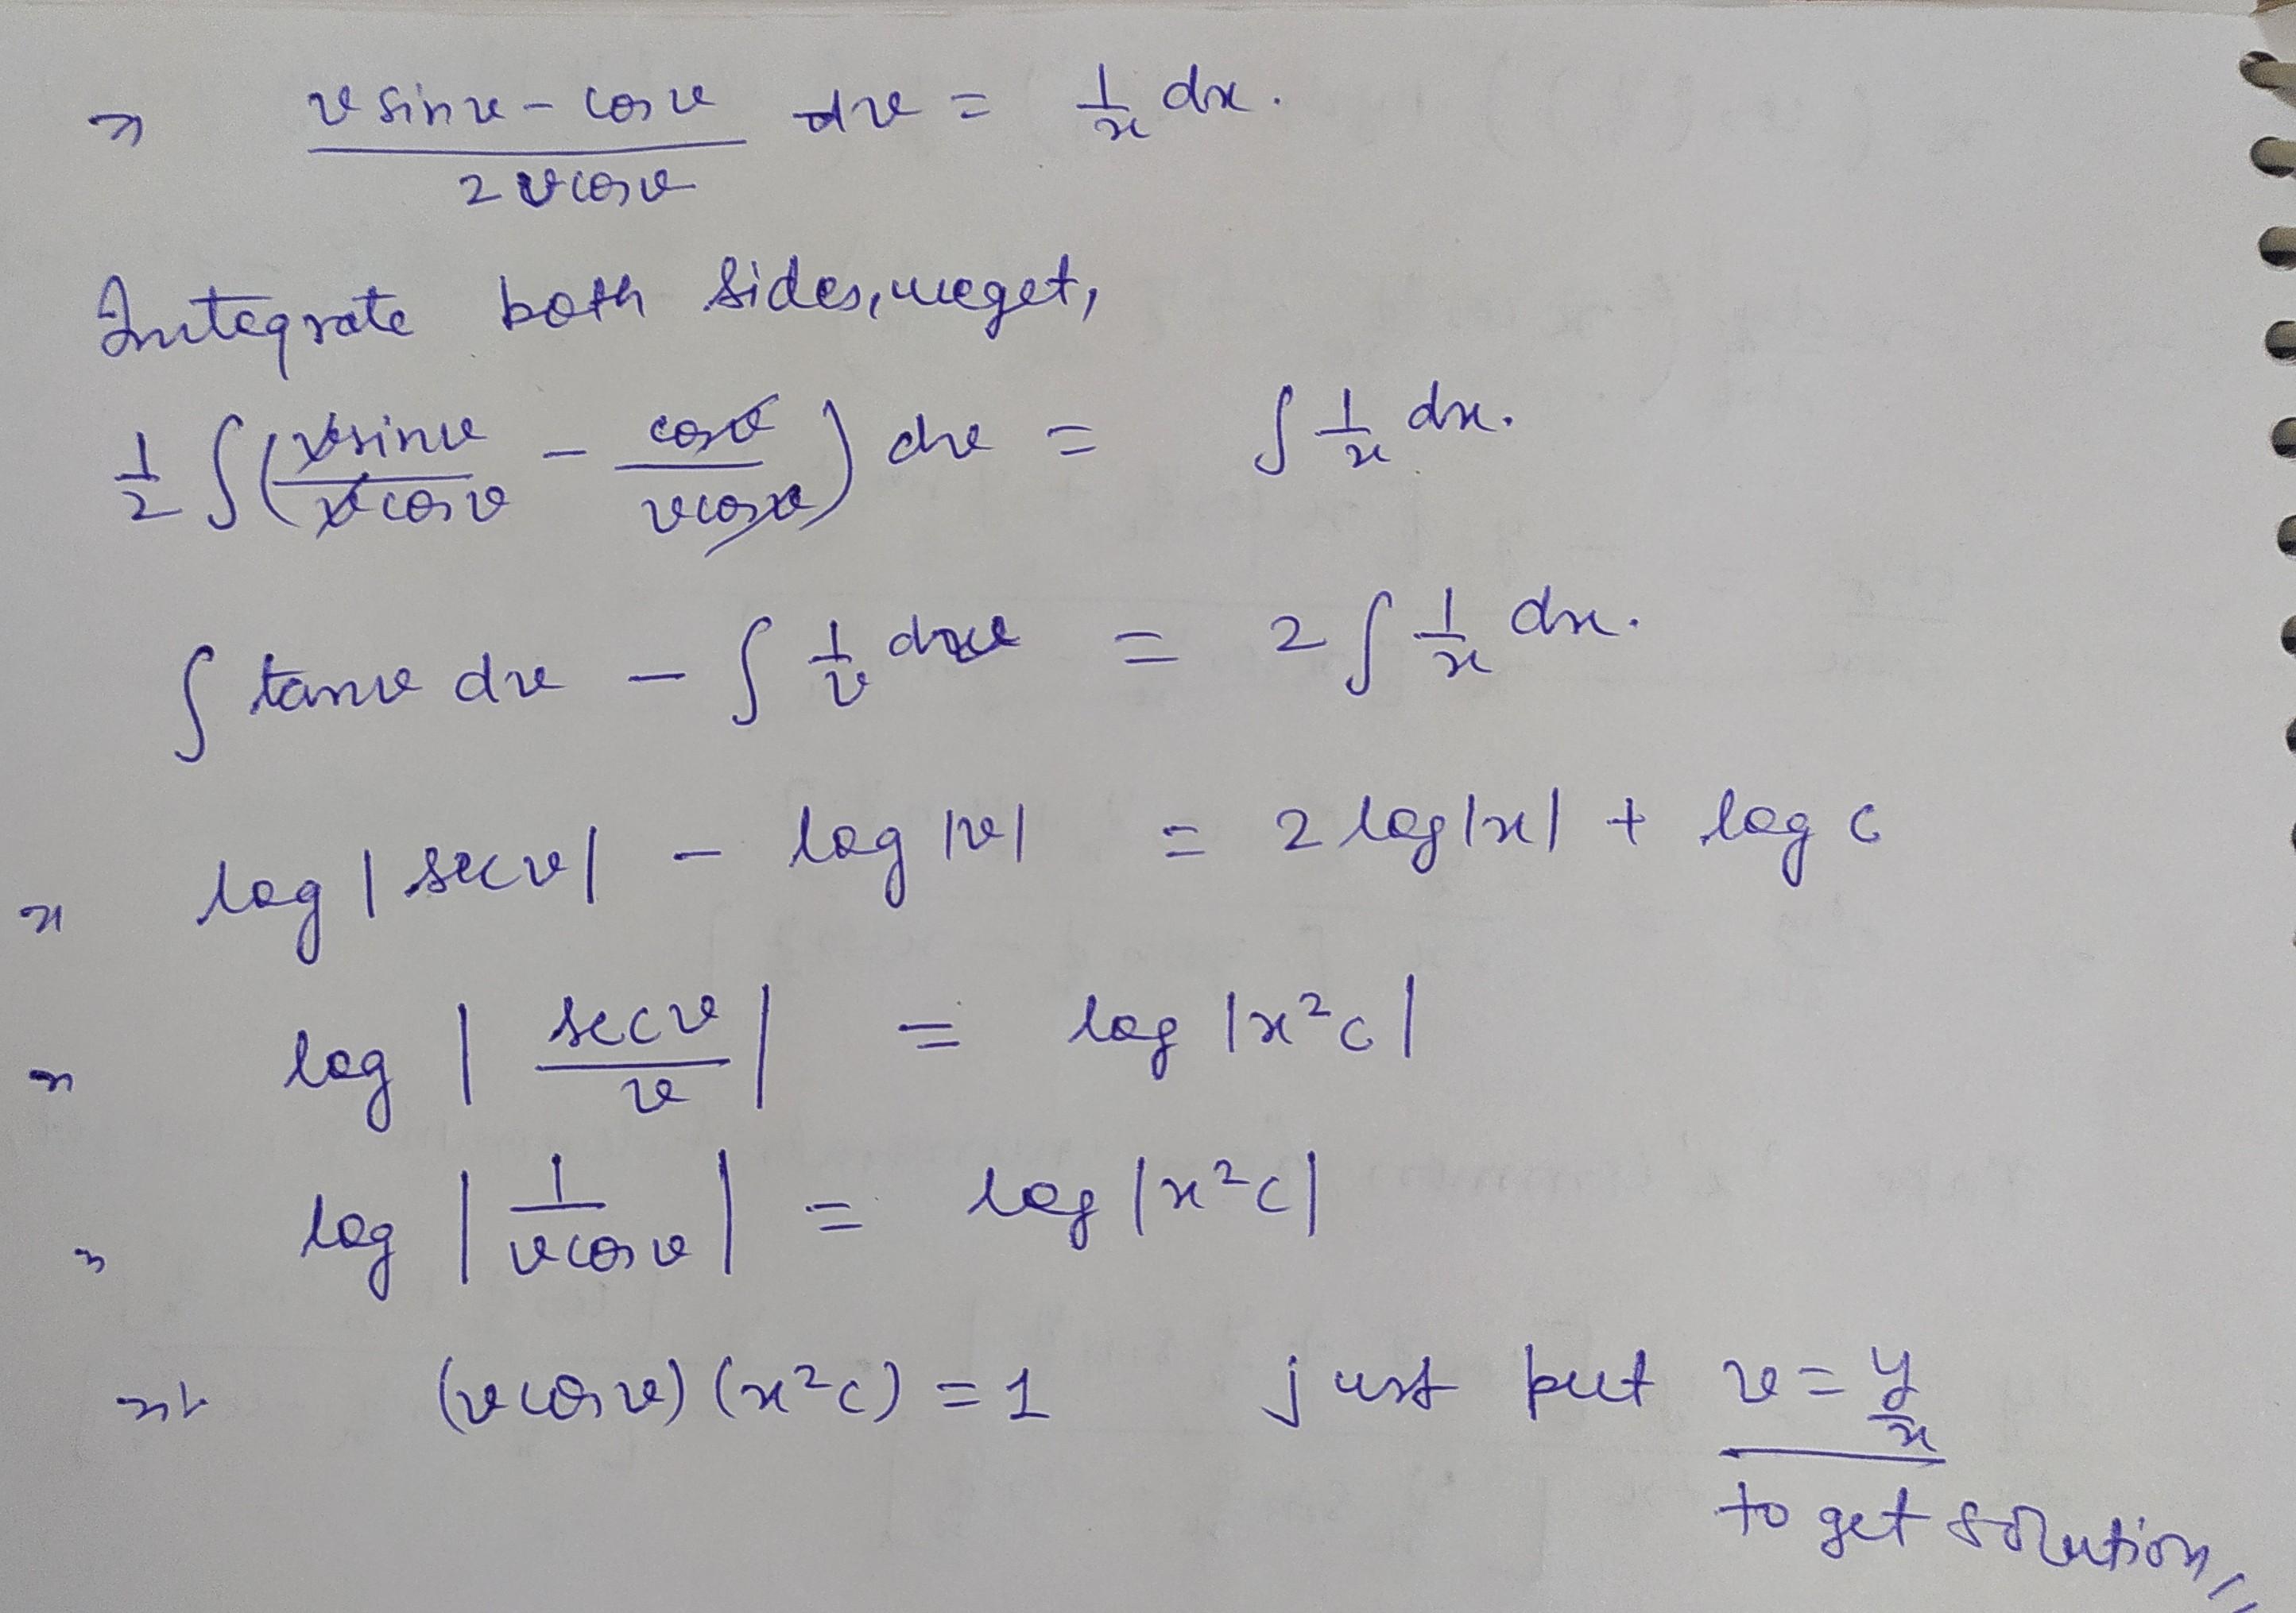 ⇒ (v sin v - cos v)/(2 v cos v) dv = 1/x dx.
Integrate both sides, we get,
1/2 ∫(v sin v/v cos v - cos v/v cos v) dv = ∫ 1/x dx.
∫ tan v dv - ∫ 1/v dv = 2 ∫ 1/x dx.
⇒ log |sec v| - log |v| = 2 log|x| + log c
⇒ log |sec v/v| = log |x²c|
⇒ log |1/v cos v| = log |x²c|
⇒ (v cos v) (x²c) = 1 just put v = y/x
to get solution,,